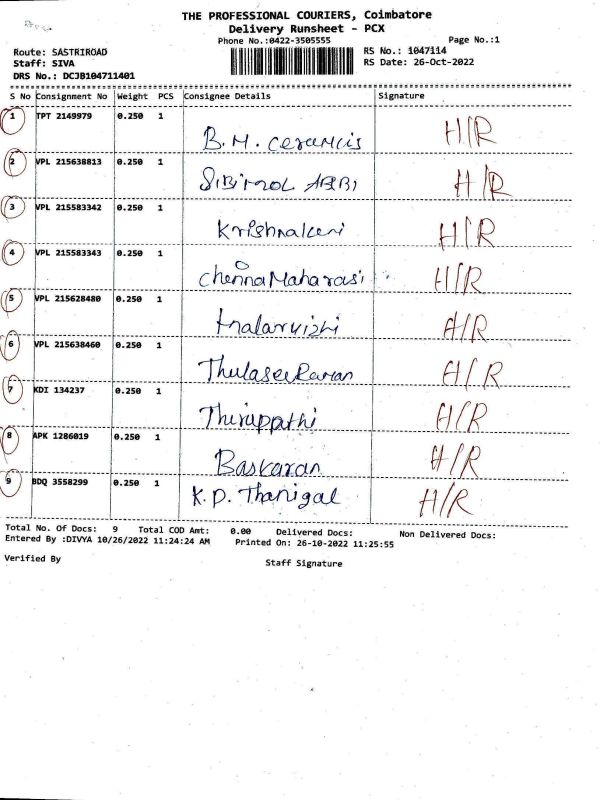 THE PROFESSIONAL COURIERS, Coimbatore
Delivery Runsheet - PCX
Phone No.:0422-3505555 Page No.:1
Route: SASTRIROAD RS No.: 1047114
Staff: SIVA RS Date: 26-Oct-2022
DRS No.: DCJB104711401
S No Consignment No Weight PCS Consignee Details Signature
1 TPT 2149979 0.250 1 B.M. ceramcis H/R
2 VPL 215638813 0.250 1 H/R
3 VPL 215583342 0.250 1 H/R
4 VPL 215583343 0.250 1 chennaMaharasi H/R
5 VPL 215628480 0.250 1 H/R
6 VPL 215638460 0.250 1 ThulaseeRaman H/R
7 KDI 134237 0.250 1 Thiruppathi H/R
8 APK 1286019 0.250 1 Baskaran H/R
9 BDQ 3558299 0.250 1 K.P. Thanigal H/R
Total No. Of Docs: 9 Total COD Amt: 0.00 Delivered Docs: Non Delivered Docs:
Entered By :DIVYA 10/26/2022 11:24:24 AM Printed On: 26-10-2022 11:25:55
Verified By Staff Signature